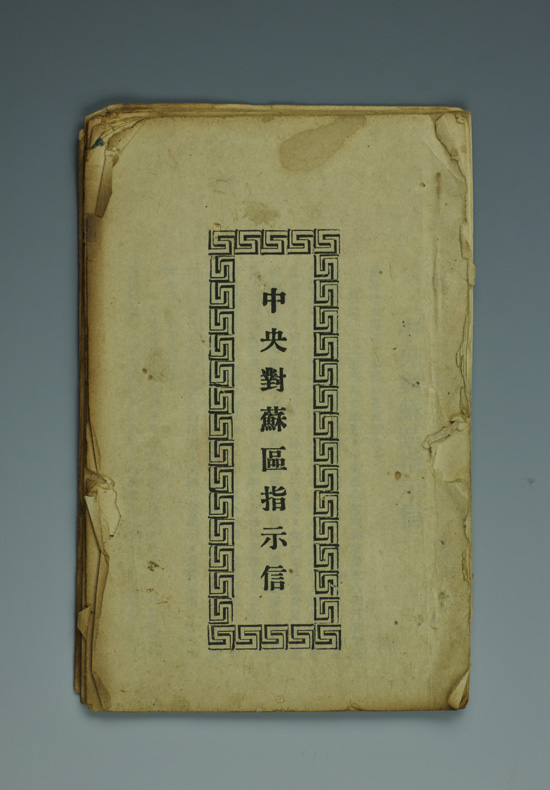 中央對蘇區指示信